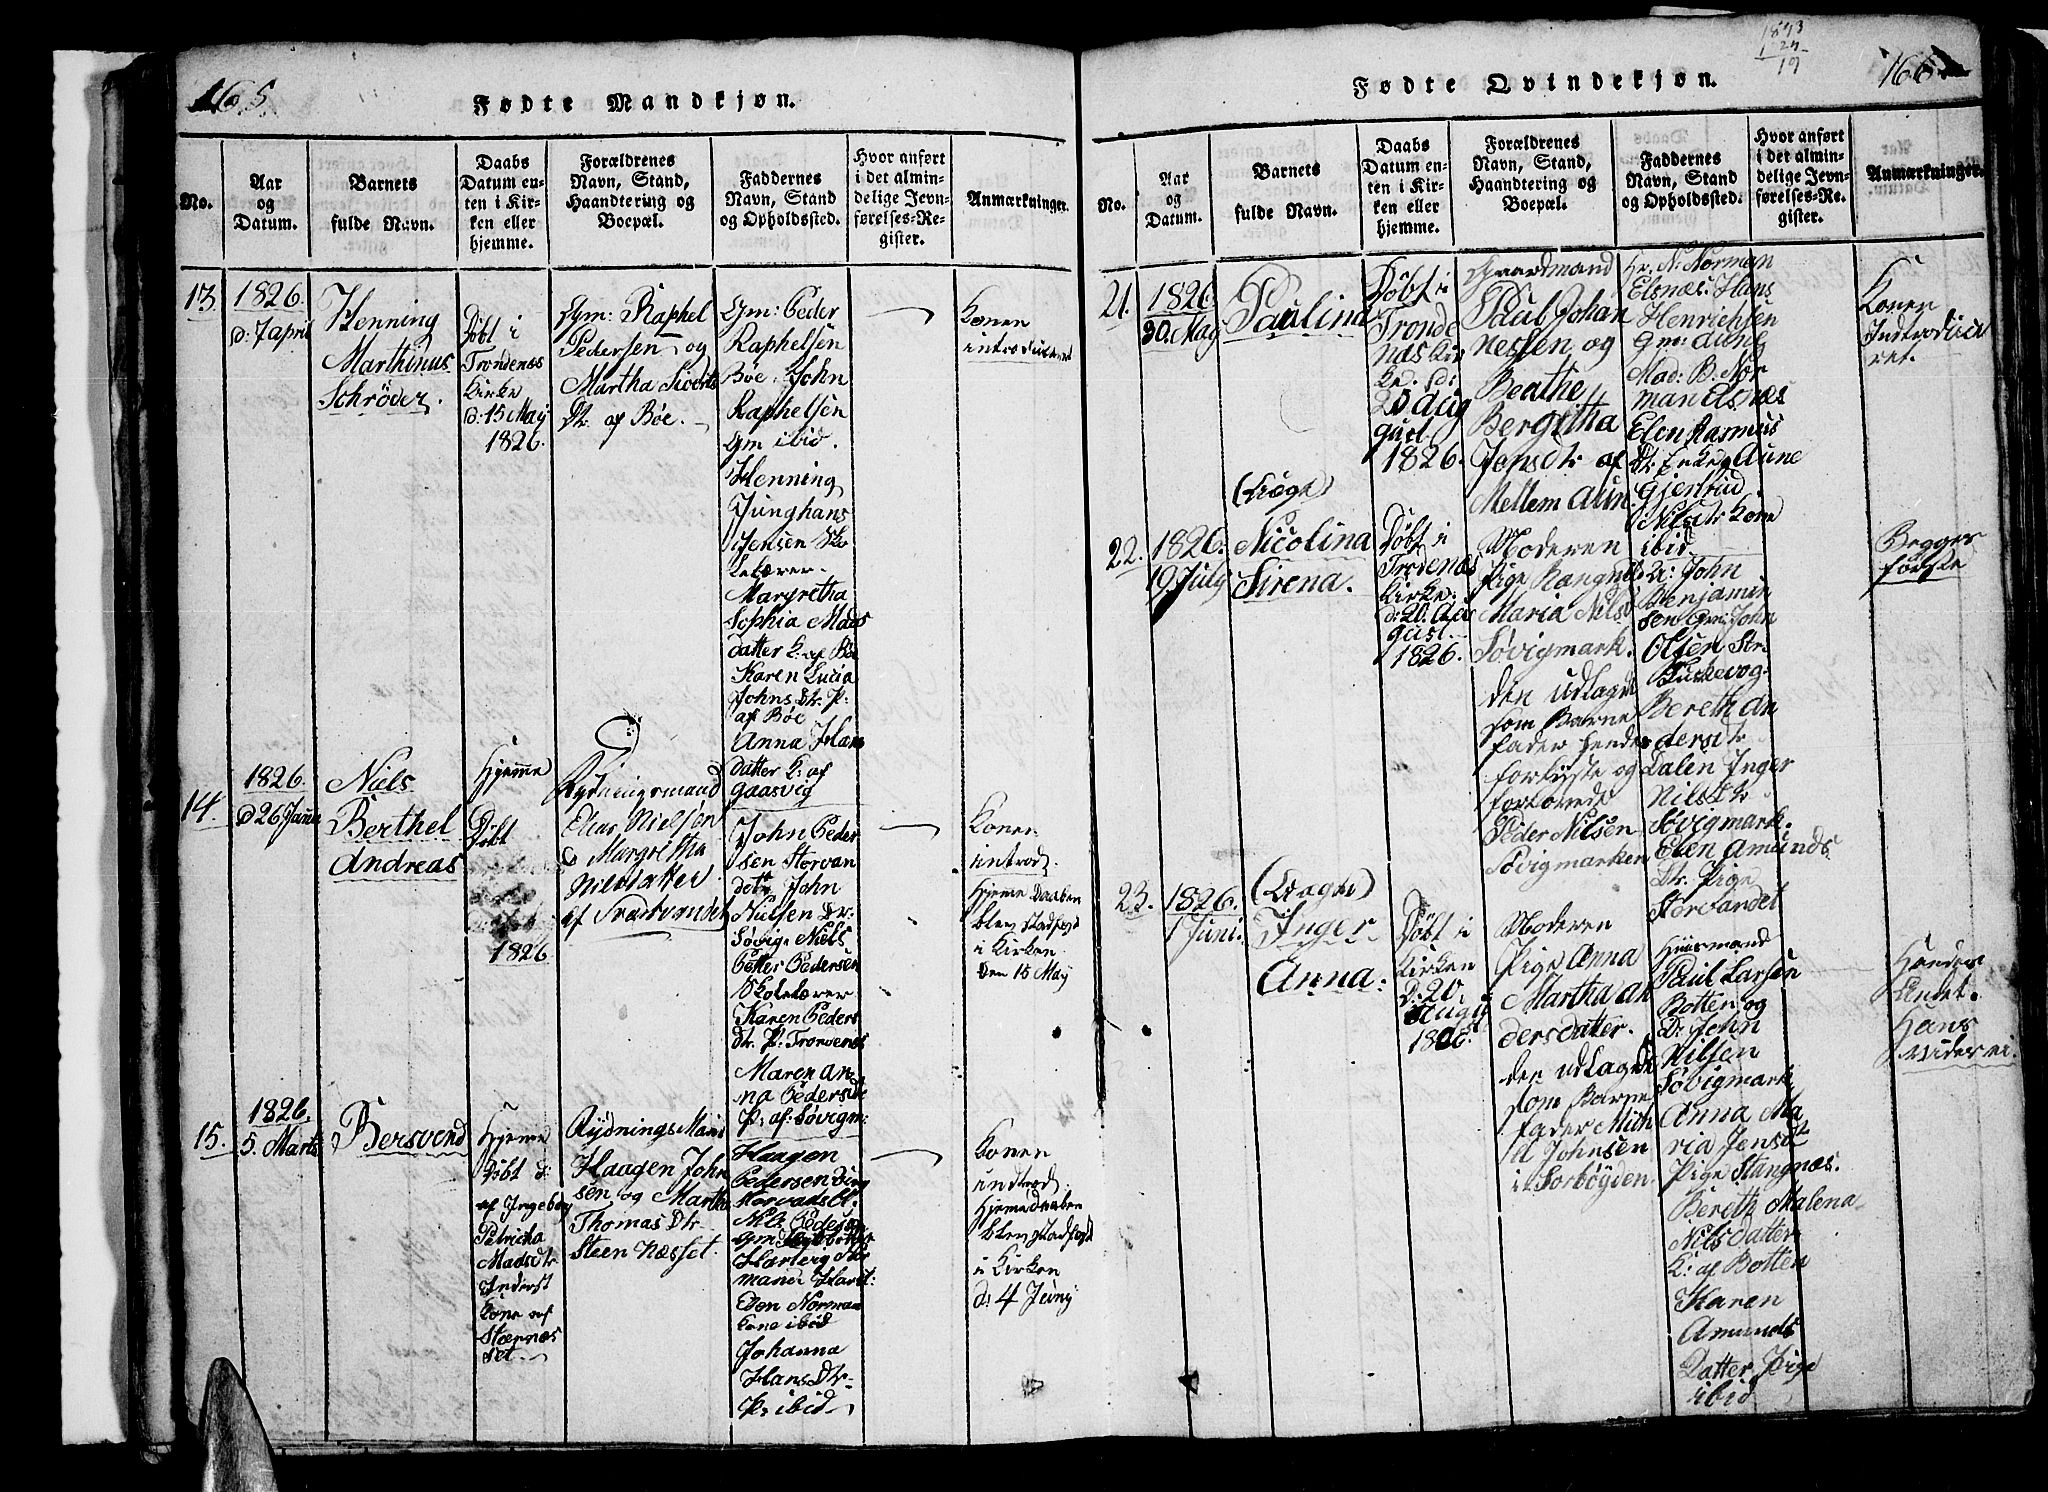 165.
Fødte Mandkjøn.
No.
Aar
og
Datum.
Barnets
fulde Navn.
Daabs
Datum en-
ten i Kir-
ken eller
hjemme.
Forældrenes
Navn, Stand,
Haandtering og
Boepæl.
Faddernes
Navn, Stand
og Opholdssted.
Hvor anført
i det almin-
delige Jevn-
førelses-Re-
gister.
Anmærkninger.
13.
1826.
d: 7 april
Henning
Marthinus
Schrøder.
Døbt i
Trondenæs
Kirke
d. 15 May
1826.
Gm: Raphel
Pedersen og
Martha Siverts
Dtr. af Bøe.
Gm: Peder
Raphelsen
Bøe, John
Raphelsen
Gm ibid.
Henning
Junghans
Jensen Sko
lelærer.
Margretha
Sophia Mads
datter K: af Bøe
Karen Lucia
Johns Dtr. P:
af Bøe
Anna Hans
datter K: af
Gaasvig
Konen
introduceret
14.
1826.
d 26 Janu
Niels
Berthel
Andreas
Hjemme
Døbt
1826
Rydningsmand
Elias Nielsen
Margretha
Nilsdatter
John Peder
sen Storvan
det, John
Nielsen Dr:
Søvig, Niels
Petter Pedersen
Skolelærer
Karen Peders
Dtr. P: Tronenes
Maren An-
na Pedersdtr
P: af: Søvigm:
Konen
introd.
Hjeme Daaben
blev stadfest
i Kirken
den 15 May
15.
1826.
5. Marts
Bersvend
Hjeme
Døbt d:
af Ingeborg
Petricka
Madsdtr
Inderst
Kone af
Stornes
set.
Rydnings Man
Haagen John
sen og Martha
Thomas Dtr.
Steen næsset.
Haagen
Pedersen
Nils Pedersen
Elen Norman
Kone ibid
Johanna
Hans Dtr.
P: ibid
Konen
introd:
Hjeme daaben
blev stadfest
i Kirken
d: 4 Juny
1843
1 24
19
166
Fødte Qvindekjøn.
No.
Aar
og
Datum.
Barnets
fulde Navn.
Daabs
Datum en-
ten i Kir-
ken eller
hjemme.
Forældrenes
Navn, Stand,
Haandtering og
Boepæl.
Faddernes
Navn, Stand
og Opholdssted.
Hvor anført
i det almin-
delige Jevn-
førelses-Re-
gister.
Anmærkninger.
21.
1826
30. May
Paulina
Døbt i
Tronde
næs Kir
ke. d:
20 Aug
gust.
1826.
Gaardmand
Paul Johan
nessen og
Beathe
Bergitha
Jensdtr af
Mellem Aun.
Hr. N: Norman
Elsnæs. Hans
Henrichsen
Gm: Aune
Mad: B. Nor
man Elsnæs
Elen Rasmus
Dtr. Enke Aune
Gjertrud
Nilsdtr Kone
ibid.
Konen
Introduce
ret.
22.
1826.
19 July
(Uægte)
Nicolina
Sirena.
Døbt i
Trodenæs
Kirke:
d: 20. Au
gust.
1826.
Moderen
Pige Rangnil
Maria Nils
Søvigmark.
den udlagde
som Barne
fader hendes
forlovede
Peder Nilsen
Søvigmarken
John
Benjamin
sen Gm: John
Olsen Str.
Bereth An
dersdtr
Dalen Inger
Nils Dtr
Søvigmark.
Elen Amunds
Dtr. Pige
Storvandet
Begges
første
23.
1826.
1 Juni.
(Uægte)
Inger
Anna:
Døbt i
Kirken
D: 20
August
1826.
Moderen
Pige Anna
Martha An
dersdatter.
den udlagde
som Barne
fader Mich
el Johnsen
i Sorbøygden
Huusmand
Paul Larsen
Botten og
Dr: John
Nilsen
Søvigmark
Anna Ma
ria Jensdt
Pige Stangnæs.
Bereth Malena
Nils Datter
K: af Botten
Karen
Amunds
Datter Pige
ibid